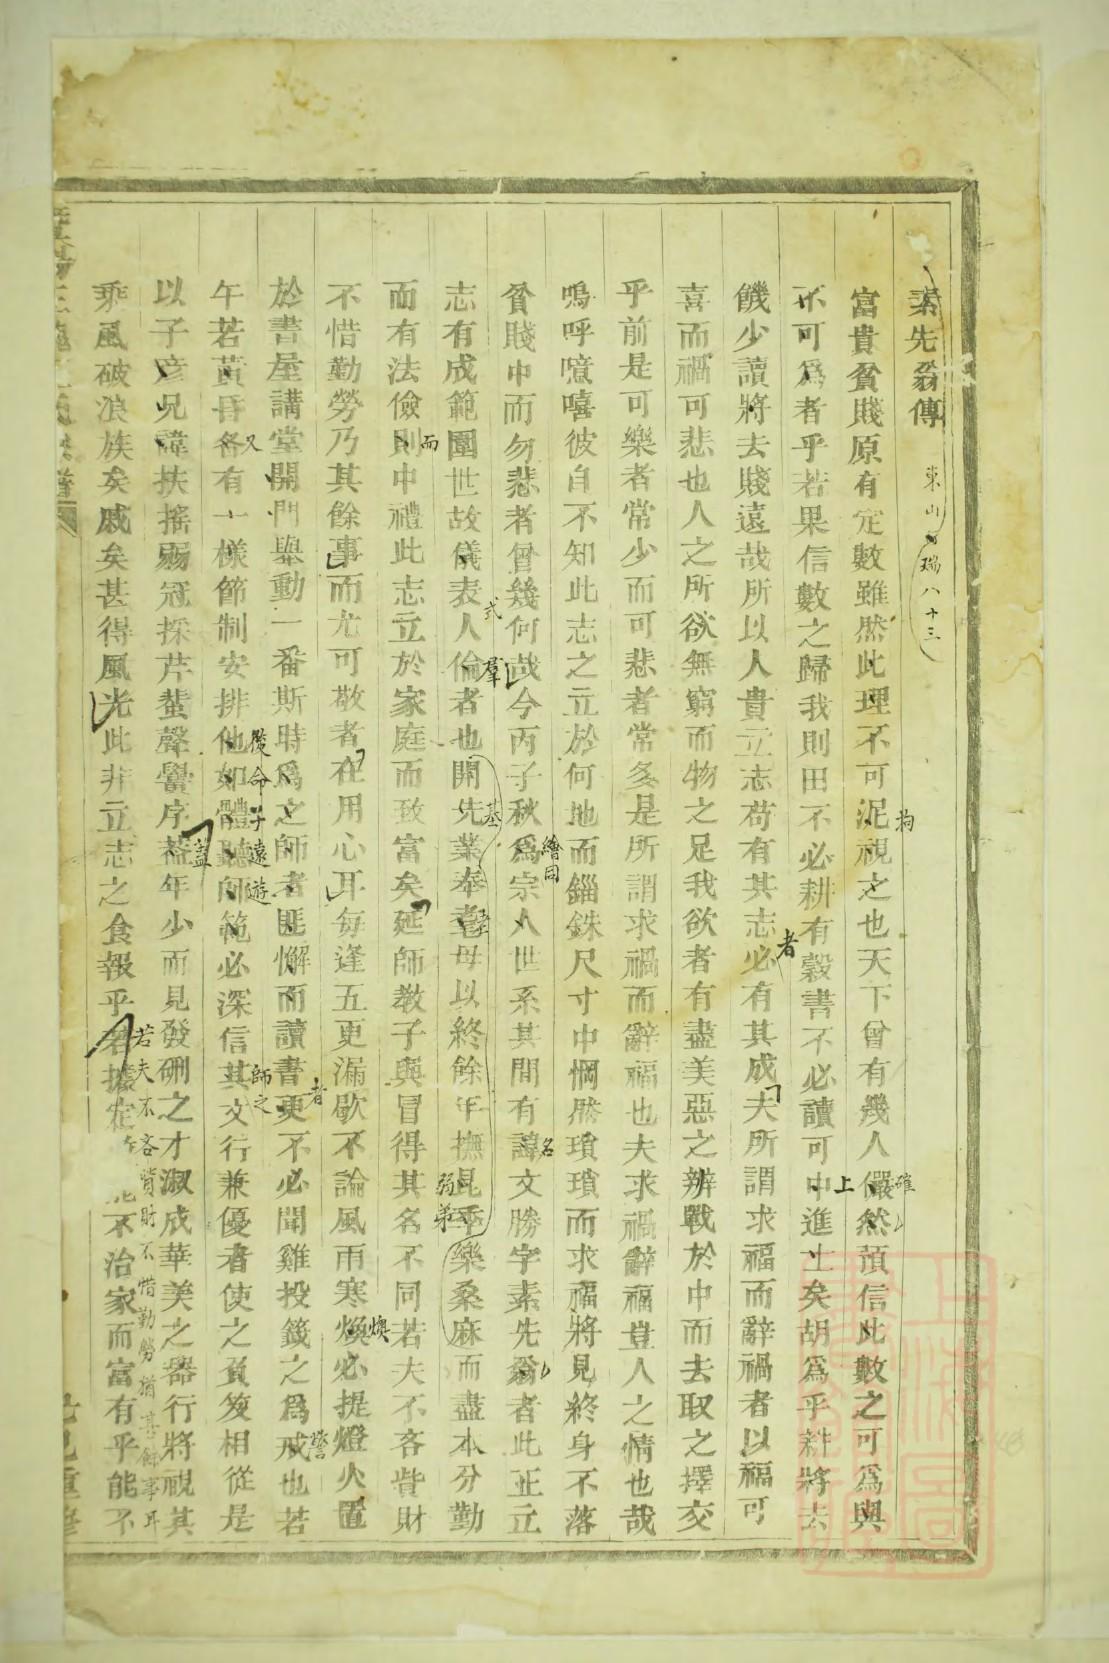 素先翁傳
東山瑞八十三
富貴貧賤原有定數雖然此理不可泥視之也天下曾有幾人儼然預信此數之可為與
拘
確
不可為者乎若果信數之歸我則田不必耕有穀書不必讀可中進士矣胡為乎耕將去
上
饑少讀將去賤遠哉所以人貴立志苟有其志必有其成夫所謂求福而辭禍者以福可
者
喜而禍可悲也人之所欲無窮而物之足我欲者有盡美惡之辨戰於中而去取之擇交
乎前是可樂者常少而可悲者常多是所謂求禍而辭福也夫求禍辭福豈人之情也哉
嗚呼噫嘻彼自不知此志之立於何地而錙銖尺寸中惘然瑣瑣而求福將見終身不落
貧賤中而勿悲者曾幾何哉今丙子秋為宗人世系其間有諱文勝字素先翁者此正立
繪圖
名
志有成範圍世故儀表人倫者也開先業奉耄母以終餘年撫昆季樂桑麻而盡本分勤
式
羣
基
弱弟
而有法儉則中禮此志立於家庭而致富矣延師教子與冒得其名不同若夫不吝貲財
而
不惜勤勞乃其餘事而尤可敬者在用心耳每逢五更漏歇不論風雨寒煥必提燈火置
燠
於書屋講堂開門舉動一番斯時為之師者匪懈而讀書更不必聞雞投籤之為戒也若
者
警
午若黃昏各有一樣節制安排他如體聽師範必深信其文行兼優者使之負笈相從是
又
從命子遠遊
師之
以子彥兄諱扶搖弱冠採芹蜚聲黌序蓋年少而見發硎之才淑成華美之器行將視其
盖
乘風破浪族矣戚矣甚得風光此非立志之食報乎若據定不治家而富有乎能不
若夫不吝貲財不惜勤勞猶其餘事耳